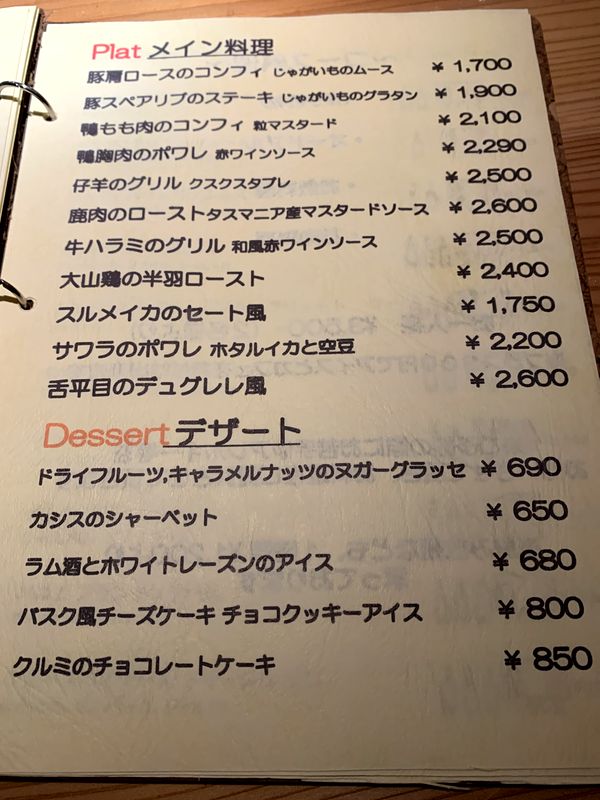 Plat メイン料理
豚肩ロースのコンフィ じゃがいものムース ¥ 1,700
豚スペアリブのステーキ じゃがいものグラタン ¥ 1,900
鴨もも肉のコンフィ 粒マスタード ¥ 2,100
鴨胸肉のポワレ 赤ワインソース ¥ 2,290
仔羊のグリル クスクスタブレ ¥ 2,500
鹿肉のローストタスマニア産マスタードソース ¥ 2,600
牛ハラミのグリル 和風赤ワインソース ¥ 2,500
大山鶏の半羽ロースト ¥ 2,400
スルメイカのセート風 ¥ 1,750
サワラのポワレ ホタルイカと空豆 ¥ 2,200
舌平目のデュグレレ風 ¥ 2,600
Dessert デザート
ドライフルーツ,キャラメルナッツのヌガーグラッセ ¥ 690
カシスのシャーベット ¥ 650
ラム酒とホワイトレーズンのアイス ¥ 680
バスク風チーズケーキ チョコクッキーアイス ¥ 800
クルミのチョコレートケーキ ¥ 850